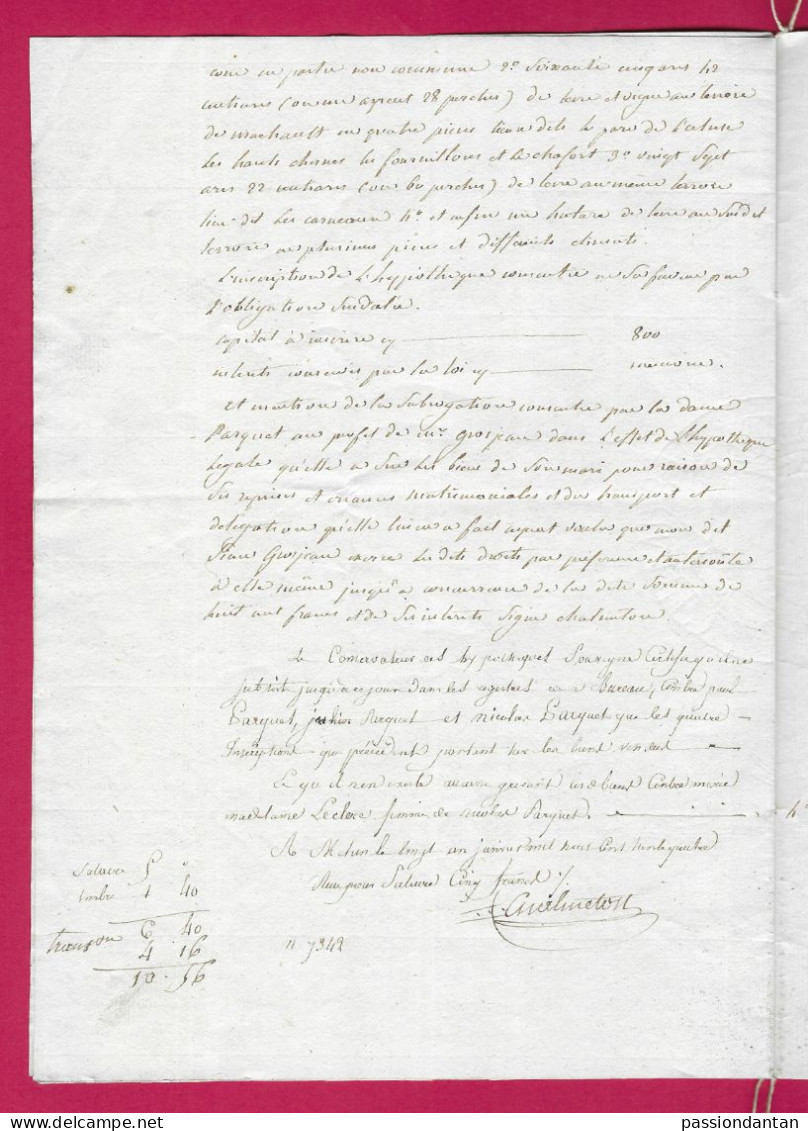 en partie non commune 2° Soixante cinq ares 42
centiares (ou un arpent 28 perches) de terre et vigne au terroir
de Machault en quatre pièces lieux dits le parc de
les hauts chesnes les fourmillons et Le chafort 3° vingt Sept
ares 22 centiares (ou 60 perches) de terre au même terroir
lieu dit Les carneaux 4° et enfin un hectare de terre au Susdit
terroir en plusieurs pièces et differents chantiers.
L'inscription de L'hypotheque consentie en Sa faveur par
l'obligation Susdatée.
capital à inscrire cy 800
interets conservés par la loi cy memoire.
et mention de la Subrogation consentie par la dame
Parquet au profit de mr. Grosjean dans L'effet de L'hypotheque
Legale qu'elle a Sur Les biens de Son mari pour raison de
Ses reprises et créances matrimoniales et du transport et
délégation qu'elle lui en a fait ayant voulu que mon dit
Sieur Grosjean exerce Les dits droits par préférence et antériorité
à elle même jusqu'à concurrence de la dite Somme de
huit cent francs et de Ses interets Signé
Le Conservateur des hypotheques Soussigné Certifie qu'il ne
subsiste jusqu'à ce jour dans les registres de ce Bureau, Contre
Parquet, Parquet et nicolas Parquet que les quatre
Inscriptions qui précèdent portant sur les biens vendus
Et qu'il n'en existe aucune grevant les d. biens Contre marie
madelaine Leclerc femme de nicolas Parquet.
A Melun le vingt un janvier mil huit Cent trente quatre
Reçu pour Salaire Cinq francs
Salaire 5 "
timbre 1 40
6 40
transon 4 16
10 . 56
n 7342
passiondantan